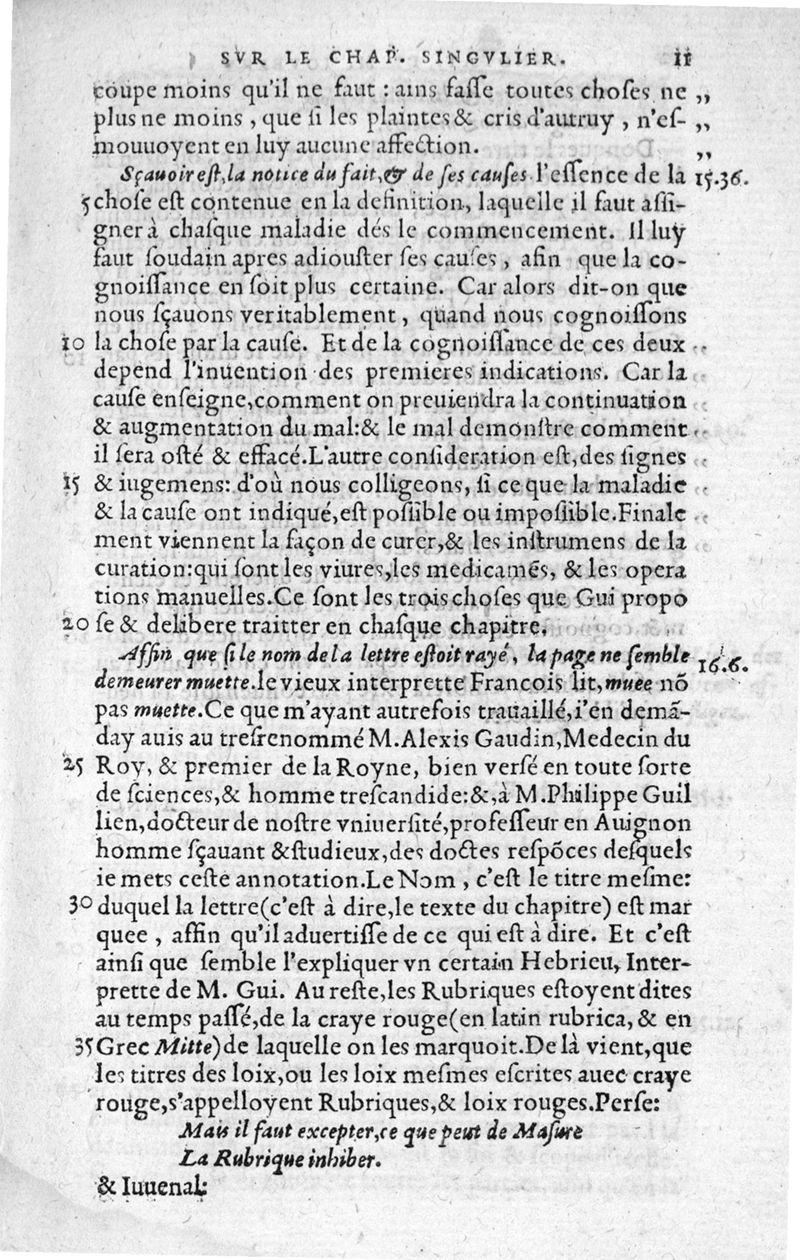 SVR LE CHAP. SINGVLIER. 11
coupe moins qu'il ne faut : ains fasse toutes choses ne ,,
plus ne moins , que si les plaintes & cris d'autruy , n'es- ,,
mouuoyent en luy aucune affection. ,,
Sçauoir est, la notice du fait, & de ses causes l'essence de la 15.36.
5 chose est contenue en la definition, laquelle il faut assi-
gner à chasque maladie dés le commencement. Il luy
faut soudain apres adiouster ses causes , afin que la co-
gnoissance en soit plus certaine. Car alors dit-on que
nous sçauons veritablement , quand nous cognoissons
10 la chose par la cause. Et de la cognoissance de ces deux ,,
depend l'inuention des premieres indications. Car la ,,
cause enseigne,comment on preuiendra la continuation ,,
& augmentation du mal:& le mal demonstre comment ,,
il sera osté & effacé.L'autre consideration est,des signes ,,
15 & iugemens: d'où nous colligeons, si ce que la maladie ,,
& la cause ont indiqué,est possible ou impossible.Finale ,,
ment viennent la façon de curer,& les instrumens de la ,,
curation:qui sont les viures,les medicamẽs, & les opera
tions manuelles.Ce sont les trois choses que Gui propo
20 se & delibere traitter en chasque chapitre.
Affin que si le nom de la lettre estoit rayé, la page ne semble 16.6.
demeurer muette.le vieux interprette Francois lit,muee nõ
pas muette.Ce que m'ayant autrefois trauaillé,i'en demã-
day auis au tresrenommé M.Alexis Gaudin,Medecin du
25 Roy, & premier de la Royne, bien versé en toute sorte
de sciences,& homme trescandide:&,à M.Philippe Guil
lien,docteur de nostre vniuersité,professeur en Auignon
homme sçauant &studieux,des doctes respõces desquels
ie mets ceste annotation.Le Nom , c'est le titre mesme:
30 duquel la lettre(c'est à dire,le texte du chapitre) est mar
quee , affin qu'il aduertisse de ce qui est à dire. Et c'est
ainsi que semble l'expliquer vn certain Hebrieu, Inter-
prette de M. Gui. Au reste,les Rubriques estoyent dites
au temps passé,de la craye rouge(en latin rubrica, & en
35 Grec Mitte)de laquelle on les marquoit.De là vient,que
les titres des loix,ou les loix mesmes escrites auec craye
rouge,s'appelloyent Rubriques,& loix rouges.Perse:
Mais il faut excepter,ce que peut de Masure
La Rubrique inhiber.
& Iuuenal: